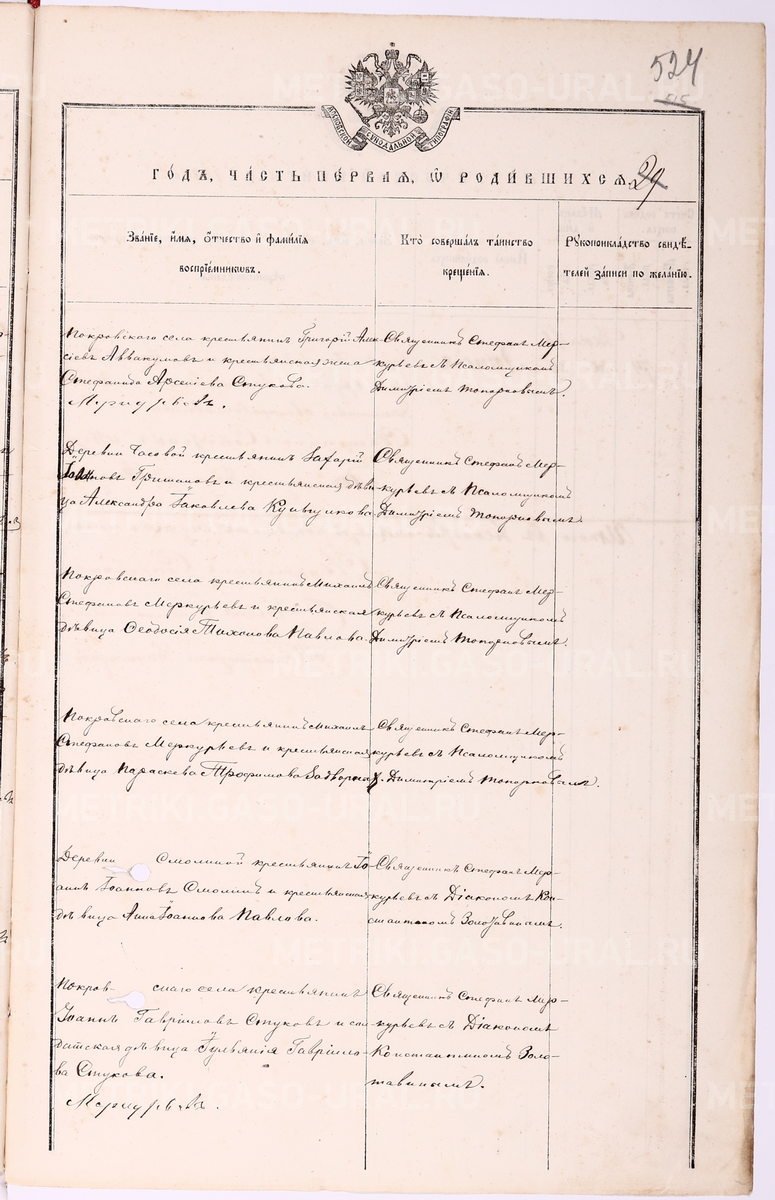 524
МОСКОВСКОЙ СѴНОДАЛЬНОЙ ТИПОГРАФІИ
ГО́ДЪ, ЧА́СТЬ ПЕ́РВАЯ, Ѡ҆ РОДИ́ВШИХСЯ.
29
Зва́нїе, и҆́мя, ѻ҆́тчество и҆ фами́лїя
воспрїе́мниковъ.
Кто̀ соверша́лъ та́инство
креще́нїя.
Рꙋкоприкла́дство свидѣ́-
телей за́писи по жела́нїю.
Покровскаго села крестьянинъ Григорій Алек-
сіевъ Аввакумовъ и крестьянская жена
Стефанида Арсеніева Стукова.
Меркурьевъ.
Священникъ Стефанъ Мер-
курьевъ съ Псаломщикомъ
Димитріемъ Топорковымъ.
Деревни Часовой крестьянинъ Захарій
Іоанновъ Гришановъ и крестьянская дѣви-
ца Александра Іаковлева Кривщикова
Священникъ Стефанъ Мер-
курьевъ съ Псаломщикомъ
Димитріемъ Топорковымъ.
Покровскаго села крестьянинъ Михаилъ
Стефановъ Меркурьевъ и крестьянская
дѣвица Ѳеодосія Тихонова Павлова.
Священникъ Стефанъ Мер-
курьевъ съ Псаломщикомъ
Димитріемъ Топорковымъ.
Покровскаго села крестьянинъ Михаилъ
Стефановъ Меркурьевъ и крестьянская
дѣвица Параскева Трофимова Задворных.
Священникъ Стефанъ Мер-
курьевъ съ Псаломщикомъ
Димитріемъ Топорковымъ.
Деревни Смолиной крестьянинъ Іо-
аннъ Іоанновъ Смолинъ и крестьянская
дѣвица Анна Іоаннова Павлова.
Священникъ Стефанъ Мер-
курьевъ съ Діакономъ Кон-
стантиномъ Золотавинымъ.
Покров- скаго села крестьянинъ
Іоаннъ Гавріиловъ Стуковъ и сол-
датская дѣвица Іуліанія Гавріило-
ва Стукова.
Меркурьевъ.
Священникъ Стефанъ Мер-
курьевъ съ Діакономъ
Константиномъ Золо-
тавинымъ.
METRIKI.GASO-URAL.RU